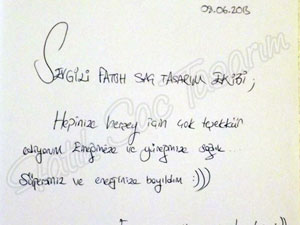 09.06.2013
SEVGİLİ FATİH SAÇ TASARIM EKİBİ;
Hepinize herşey için çok teşekkür
ediyorum. Emeğinize ve yüreğinize sağlık...
Süpersiniz ve enerjinize bayıldım :)))
Fatih Saç Tasarım